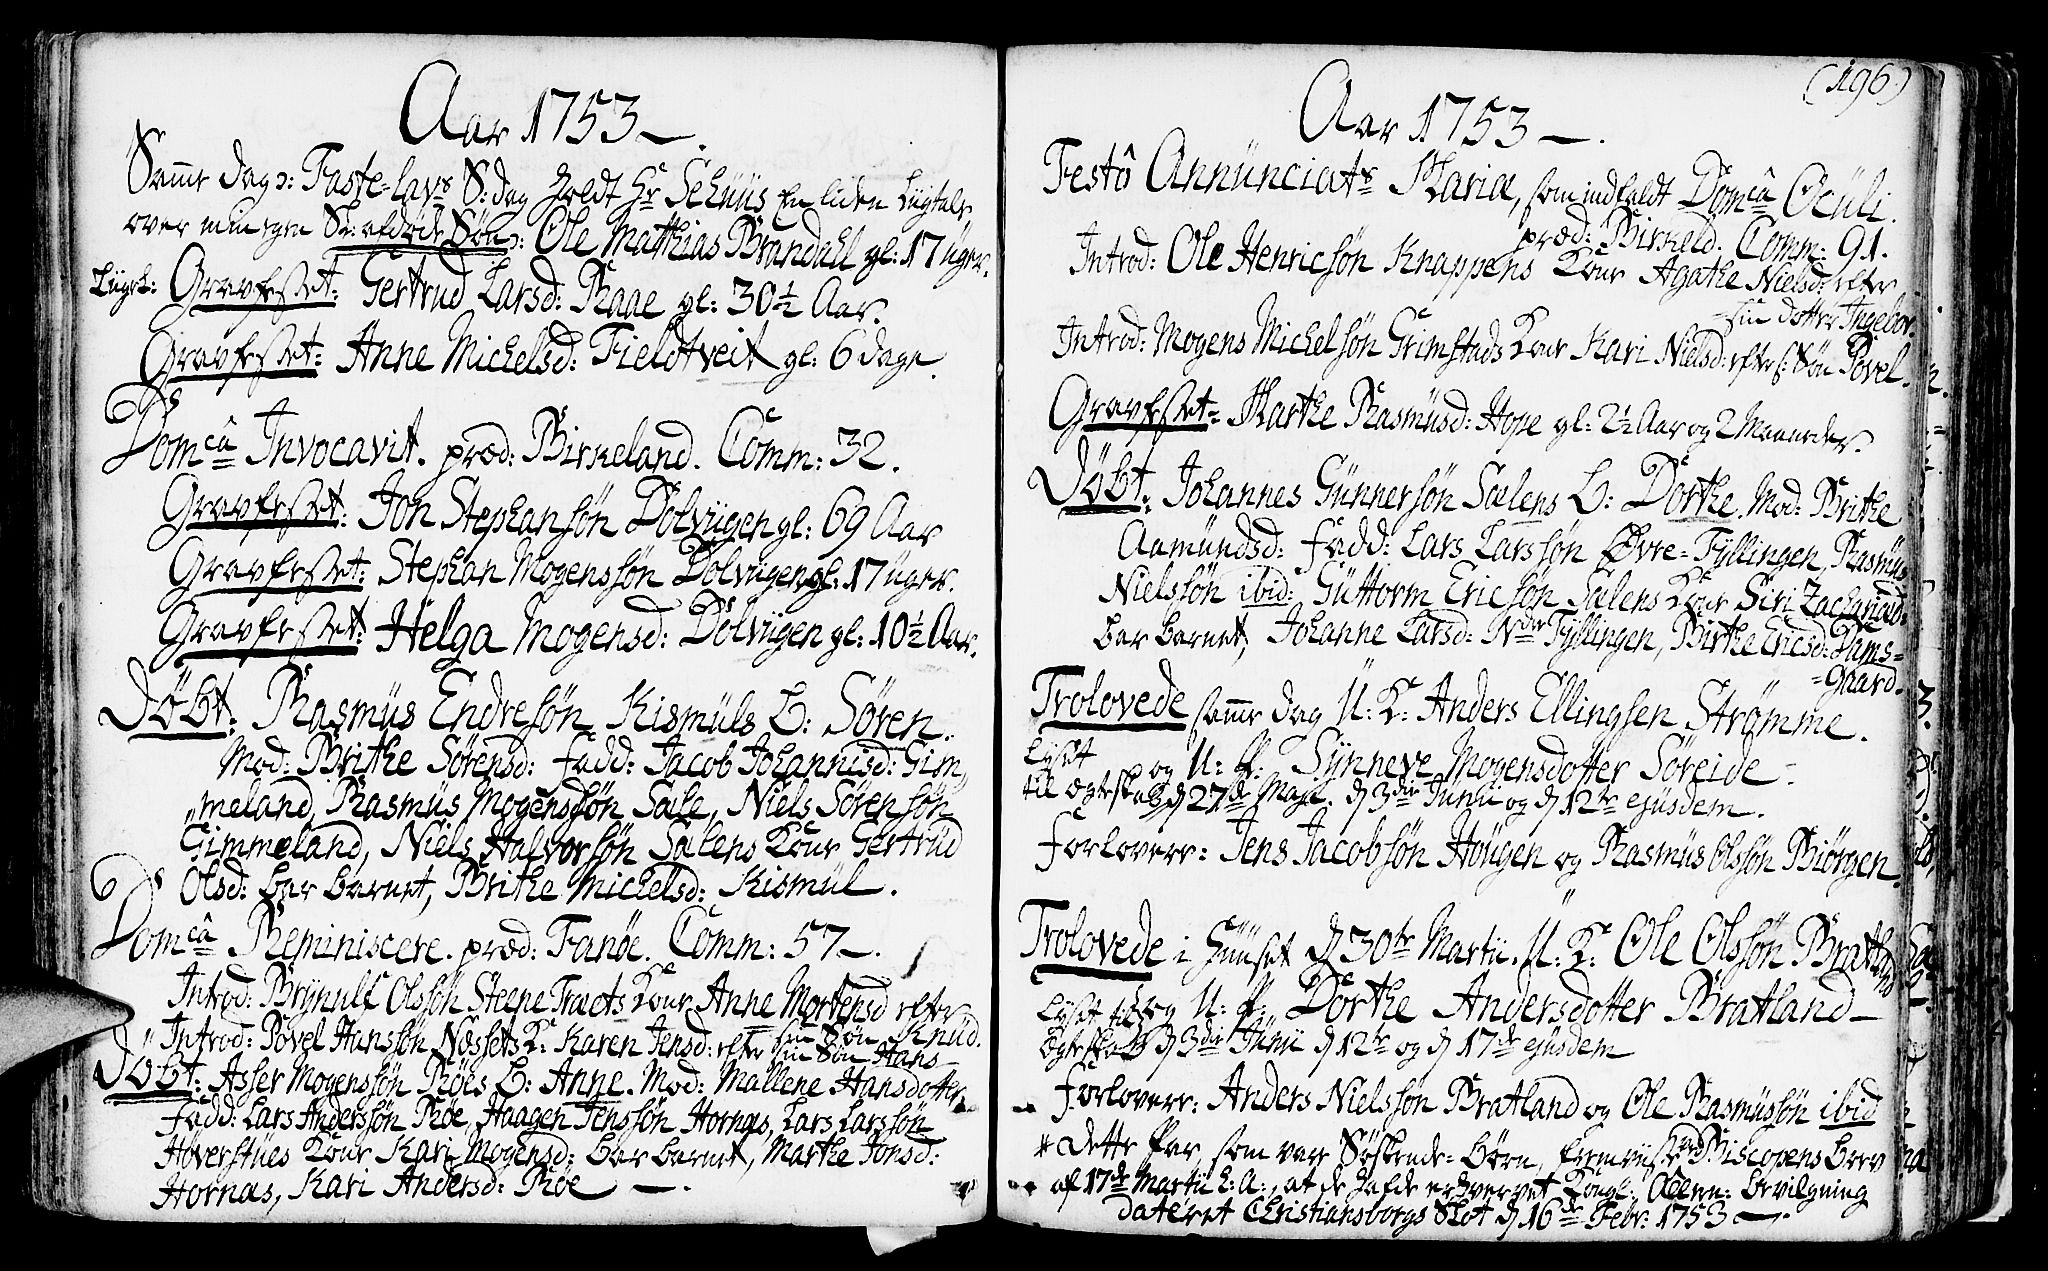 Aar 1753 –.
Samme dag ɔ: Faste-lavs S: dag holdt Hr Sehuus En liden Liigtale
over min egen Sl: afdøde Søn ɔ: Ole Matthias Brandahl gl: 17 uger.
Liigpr: Gravfestet: Gertrud Larsd: Raae gl: 30½ Aar.
Gravfestet: Anne Michelsd: Fieldtveit gl: 6 dage.
Domcâ Invocavit. præd: Birkeland. Comm: 32.
Gravfestet: Jon Stephansøn Dolviigen gl: 69 Aar
Gravfestet: Stephan Mogenssøn Dolviigen gl: 17 uger.
Gravfestet: Helga Mogensd: Dolviigen gl: 10½ Aar.
Döbt: Rasmus Endresøn Kismüls b: Søren.
Mod: Brithe Sørensd: fadd: Jacob Johannisd: Gim„
„meland, Rasmus Mogenssøn Sæle, Niels Sørensøn
Gimmeland, Niels Halvorsøn Sælens Kone Gertrud
Olsd: bar barnet, Brithe Michelsd: Kismül.
Domcâ Reminiscere. præd: Fanøe. Comm: 57 –.
Introd: Brynulf Olssøn Steene Træets Kone Anne Mortensd efter
sin Søn Knud.
Introd: Povel Hanssøn Næssets K: Karen Jensd: efter sin Søn Hans –
Döbt: Asser Mogenssøn Röes b: Anne. Mod: Mallene Hansdotter
Fadd: Lars Anderssøn Röe, Haagen Jenssøn Hornæs, Lars Larssøn
Høverstües Kone Kari Mogensd: bar barnet, Marthe Jonsd:
Hornæs, Kari Andersd: Röe –.
(196.)
Aar 1753 –.
Festô Annünciats Mariæ, som indfaldt Domcâ Oculi.
præd: Birkeld. Comm: 91.
Introd: Ole Henricsøn Knappens Kone Agathe Nielsd: efter
sin dotter Ingebor.
Introd: Mogens Michelsøn Grimstads Kone Kari Nielsd: efter s: Søn Povel.
Gravfestet: Marthe Rasmusd: Hope gl: 2½ Aar og 2 Maaneder.
Döbt: Johannes Gunnersøn Sælens b: Dorthe. Mod: Brithe
Aamundsd: fadd: Lars Larssøn Øvre-Tyllingen, Rasmus
Nielssøn ibid: Guttorm Ericsøn Sælens Kone Siri Zachariæd:
bar barnet, Johanne Larsd: Ndre Tyllingen, Birthe Ericsd: Dams=
=Gaard.
Trolovede samme dag U: K: Anders Ellingsen Strømme.
og U: P: Synneve Mogensdotter Søreide –
lyset
til Egteskab d 27de Maji. d 3die Junii og d 12te ejusdem.
Forlovere: Jens Jacobsøn Hougen og Rasmus Olssøn Biörgen.
Trolovede i Huuset d 30te Martii. U: K: Ole Olssøn Bratland
og U: P: Dorthe Andersdotter Bratland –
lyset til
Egteskab d 3die Junii d 12te og d 17de ejusdem
Forlovere: Anders Nielssøn Bratland og Ole Rasmussøn ibid
* Dette Par, som var Söskende-børn, fremviiste Biscopens brev
af 17de Martii h: a:, at de hafde erhvervet Kongl: Allern: bevilgning
dateret Christiansborgs Slot d 16de Febr: 1753 –.